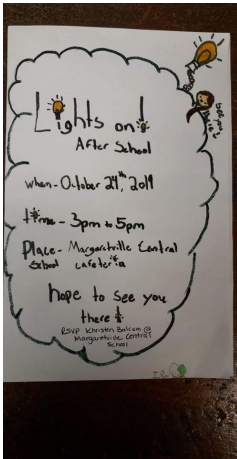 Lights on!
After School
when - October 24th, 2019
time - 3pm to 5pm
Place - Margaretville Central
School cafeteria
hope to see you
there!
RSVP Khristen Balcom @
Margaretville Central
School